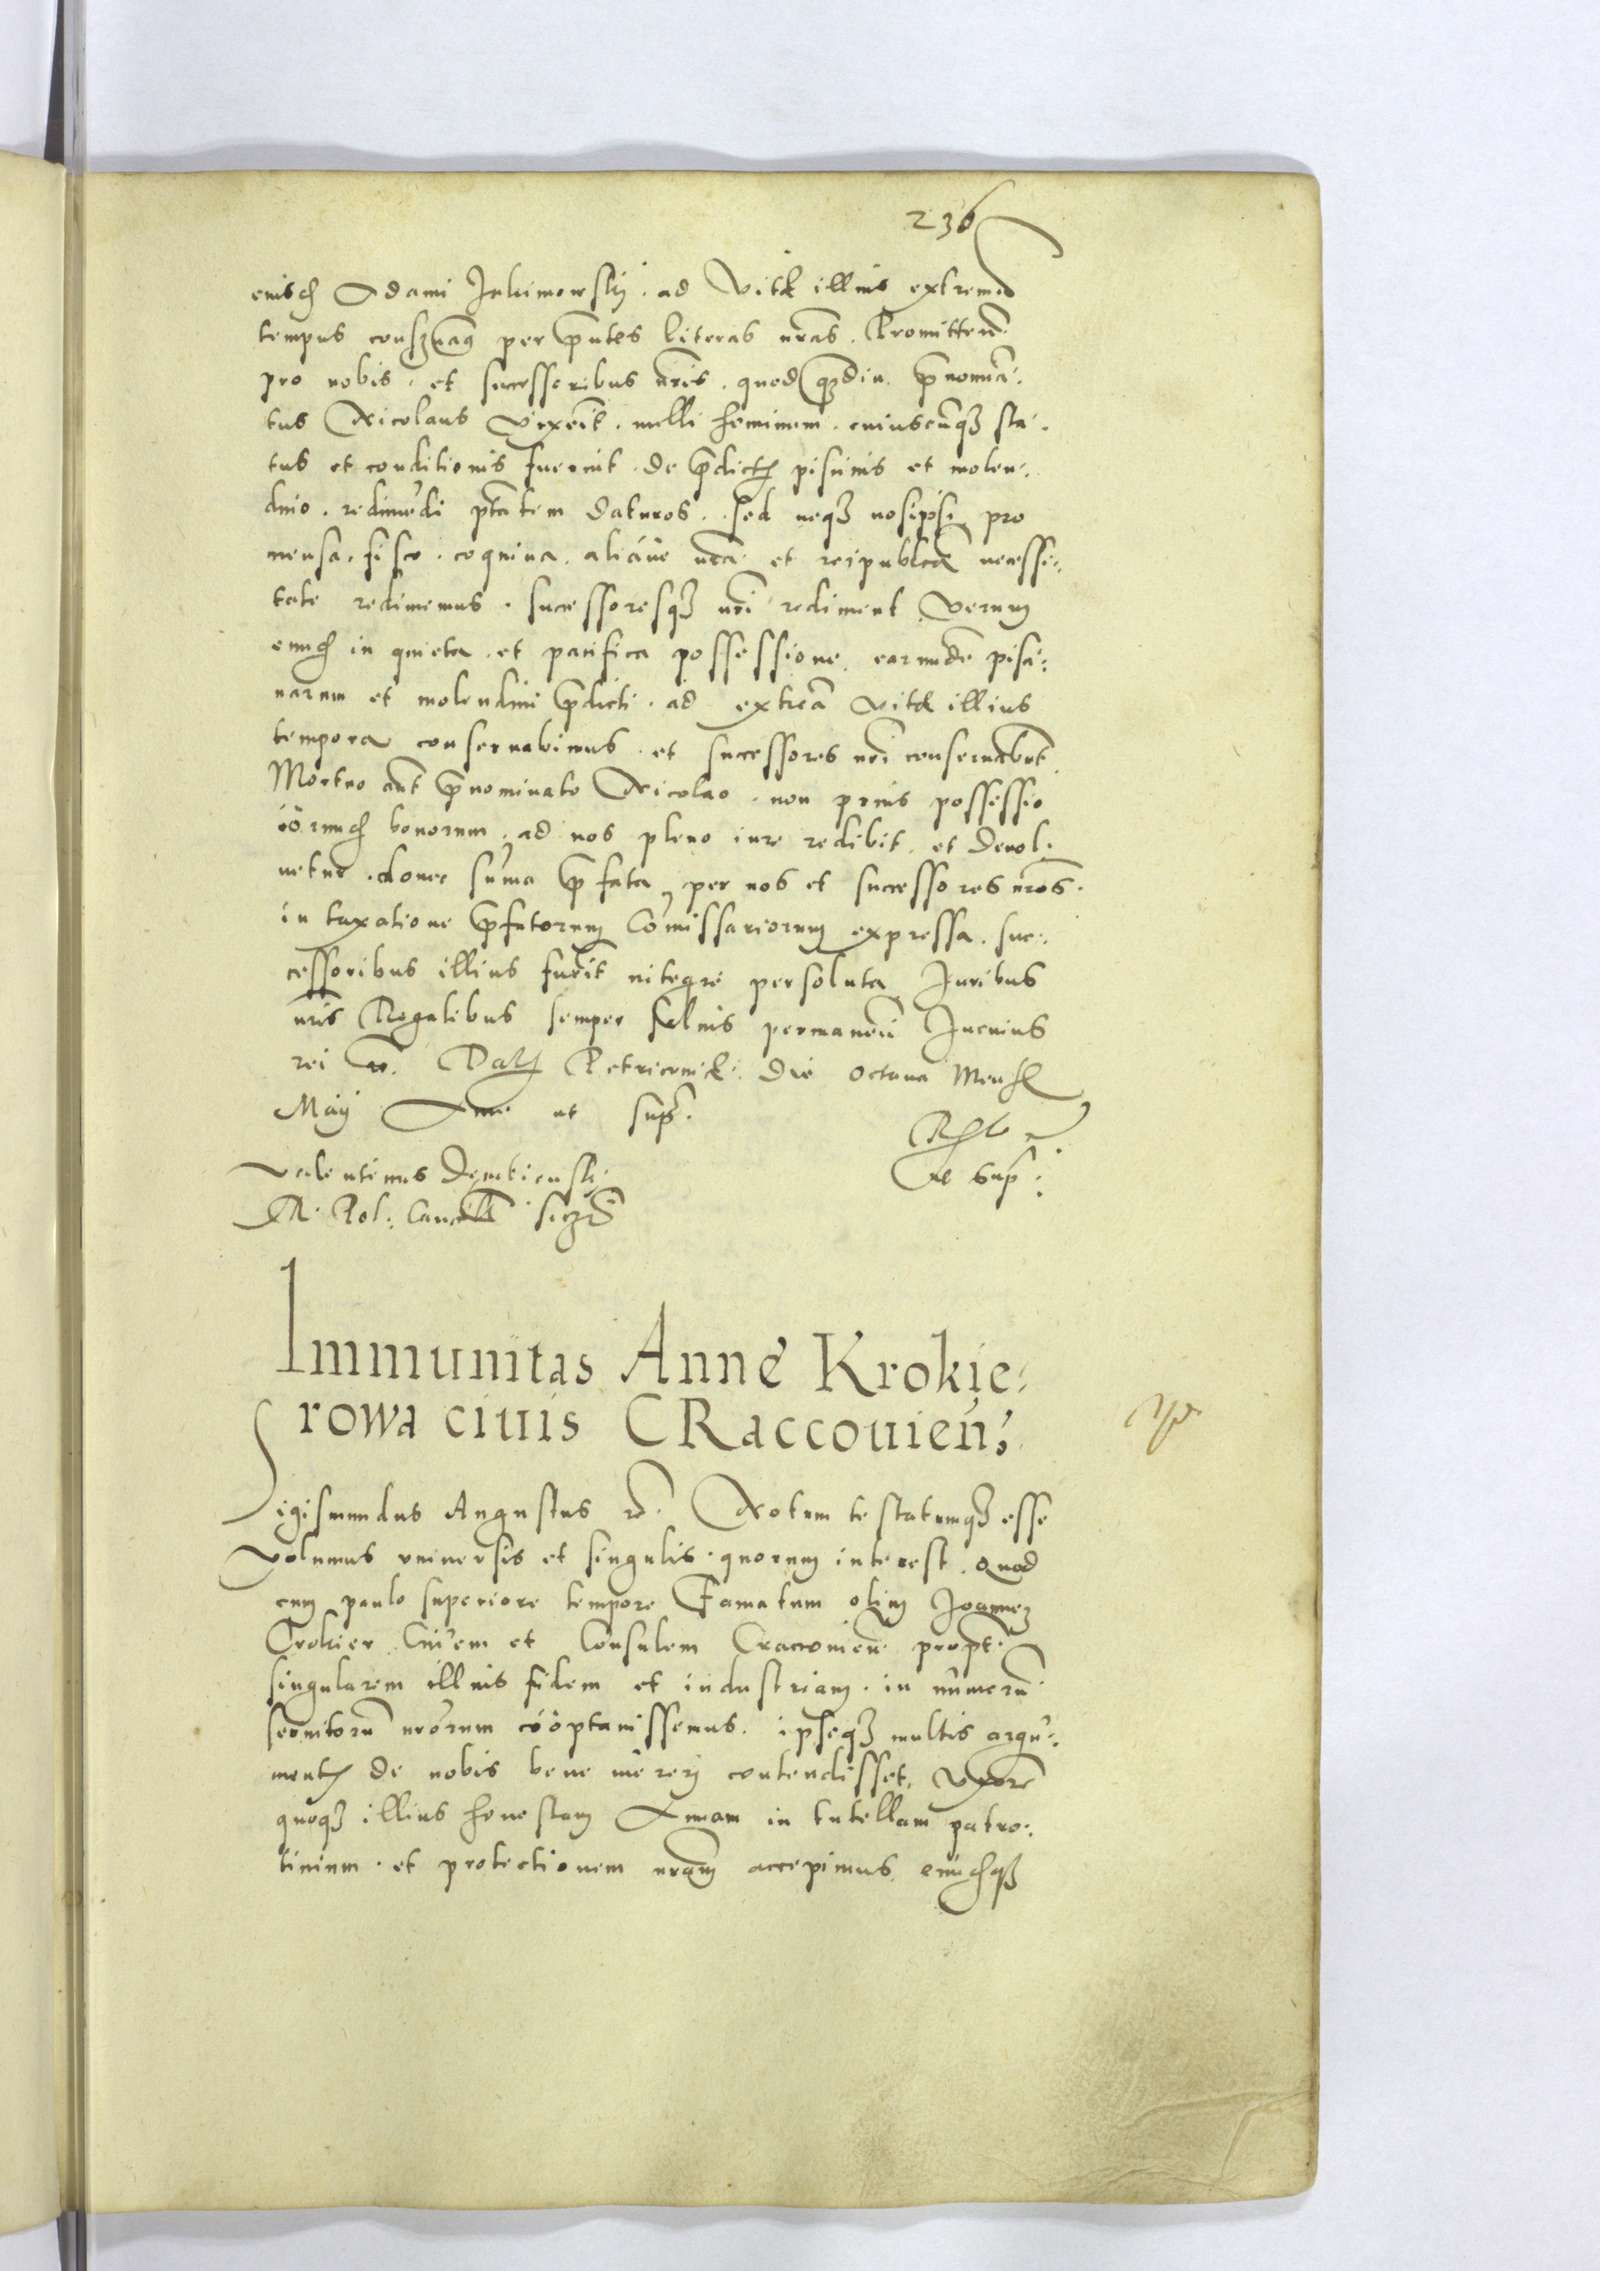 236
eiusdem Adami Jakimowskij. ad vitæ illius extremũ
tempus per pñtes literas nr̃as. Promitten̄.
pro nobis. et successoribus nr̃is. quod q̃zdiu. p̃nomĩa-
tus Nicolaus vixerit. nulli hominum. cuiuscũq3 sta-
tus et conditionis fuerint. de p̃dictis piscinis et molen-
dino. redimẽdi p̃tatem daturos. sed neq3 nosipsi pro
mensa. fisco. coquina. aliáue nr̃a et reipublicæ necessi-
tate redimemus. successoresq3 nr̃i rediment. Verum
eundem in quieta. et pacifica possessione. earundẽ pisci-
narum et molendini p̃dicti. ad extrema vitæ illius
tempora conseruabimus. et successores nr̃i conseruabũt.
Mortuo aũt p̃nominato Nicolao. non prius possessio
eórundem bonorum, ad nos pleno iure redibit. et deuol-
uetur. donec sũma p̃fata, per nos et successores nr̃os.
in taxatione p̃fatorum Cõmissariorum expressa. suc-
cessoribus illius fuerit integre persoluta. Juribus
nr̃is Regalibus semper saluis permanen̄. In cuius
rei &c. Datũ Petricouiæ. die octaua Mensis
Maij Anno ut sup̃.
Rlo
ut sup̃:
Valentinus Dembienskij
R. Pol: Cancell̃ ss̃t
Immunitas Anne Krokie-
rowa ciuis CRaccouien̄:
Sigismundus Augustus &c. Notum testatumq3 esse
volumus vniuersis et singulis. quorum interest. Quod
cum paulo superiore tempore Famatum olim Joannem
Crokier Ciuem et Consulem Craccouien̄. propt̃
singularem illius fidem et industriam. in numerũ
seruitorũ nr̃orum coóptauissemus. ipseq3 multis argu-
mentis de nobis bene mererj contendisset. Vxorẽ
quoq3 illius honestam Annam in tutellam patro-
cinium. et protectionem nr̃am accepimus. eundemq3